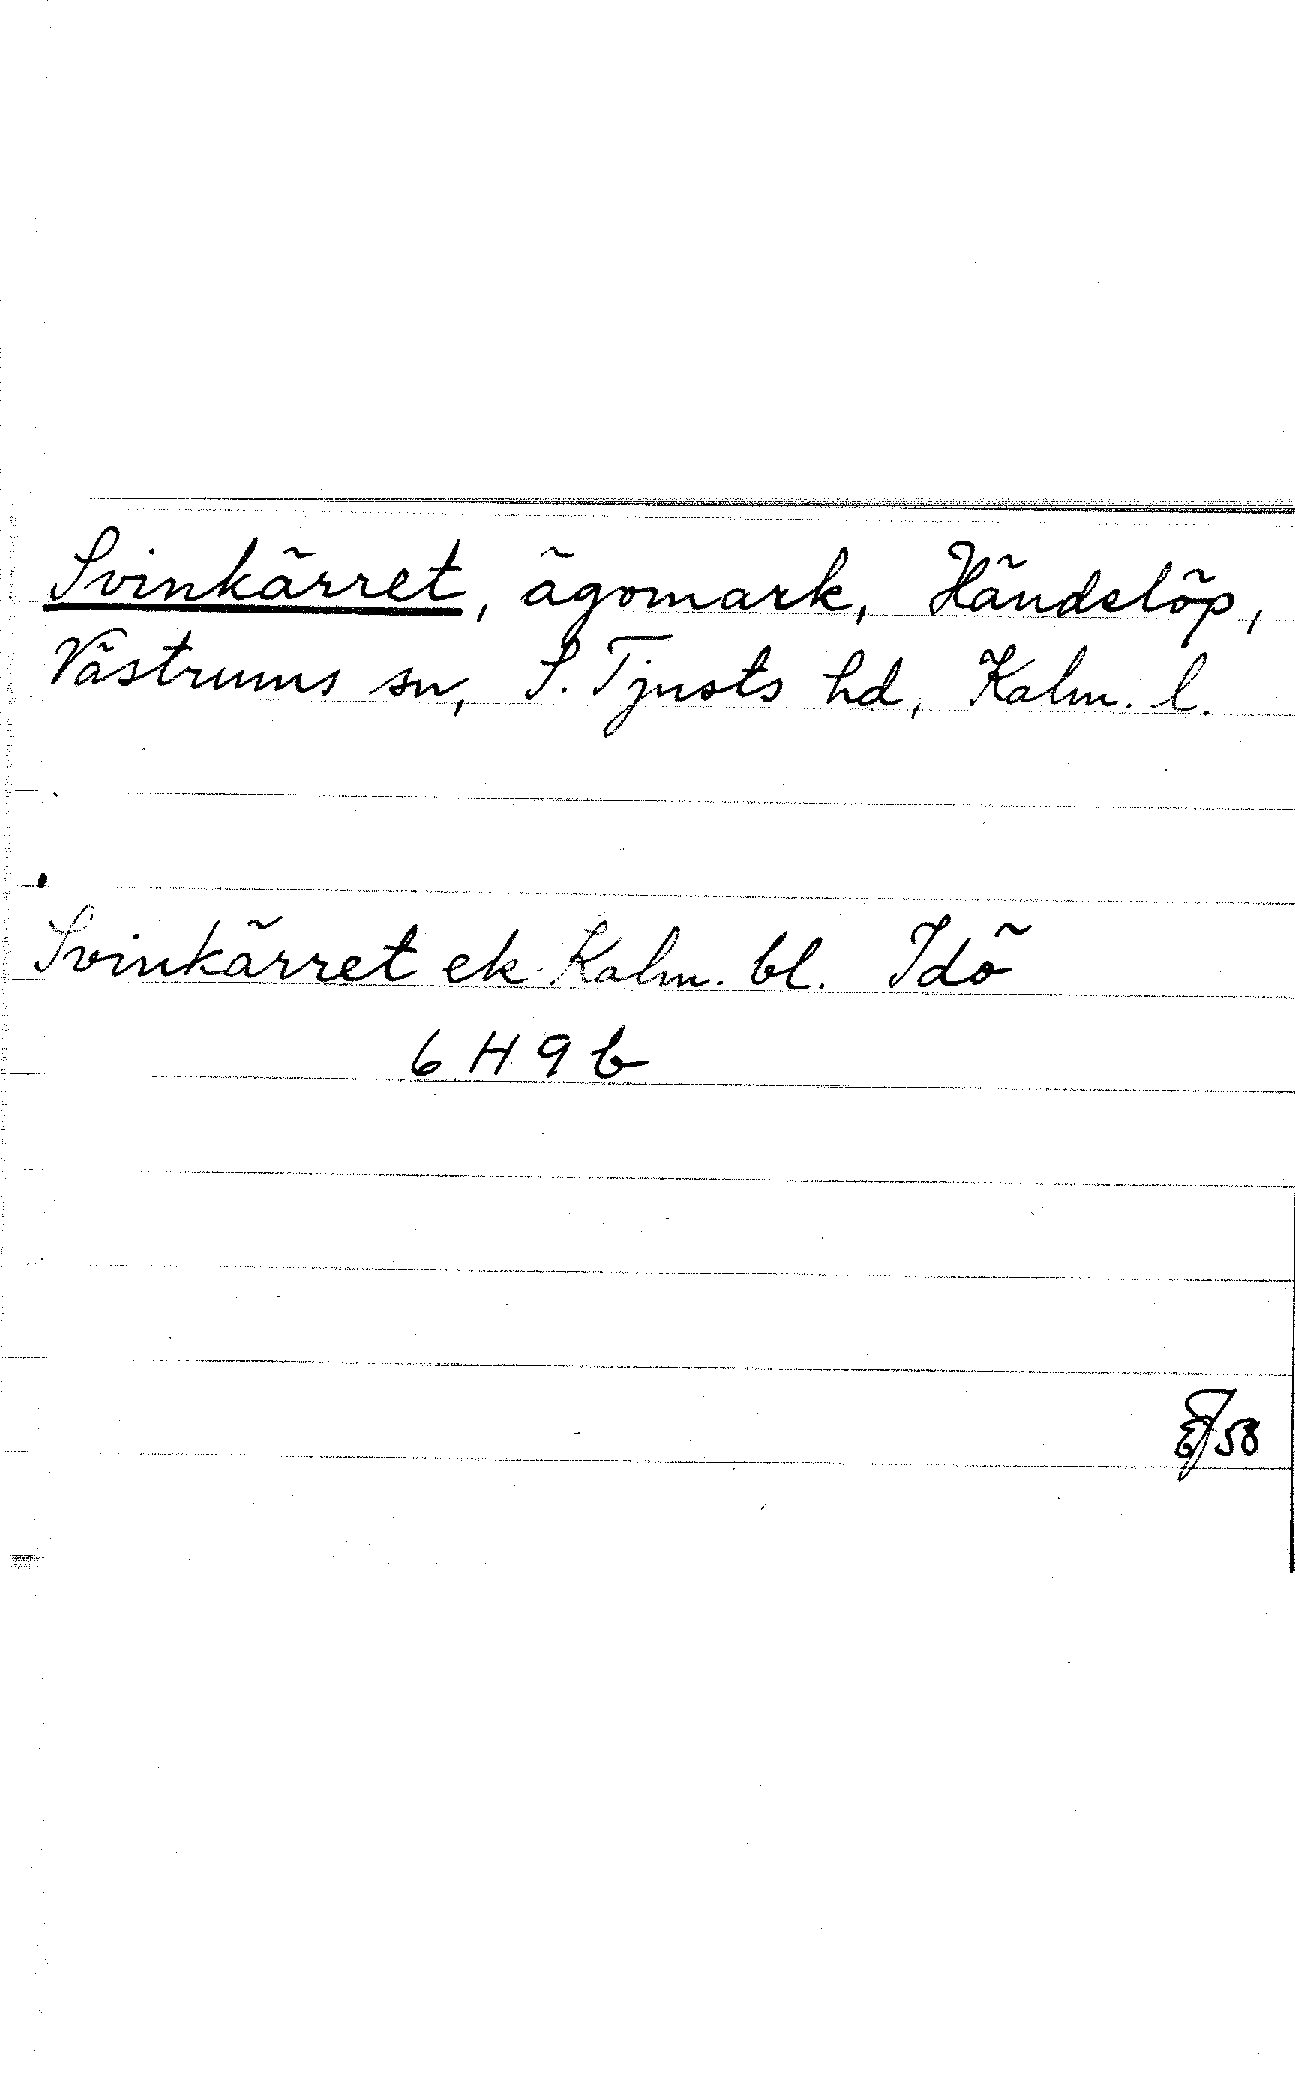 Svinkärret, ägomark, Händelöp,
Västrums sn, S. Tjusts hd, Kalm. l.
Svinkärret ek Kalm. bl. Idö
6 H 9 b
58